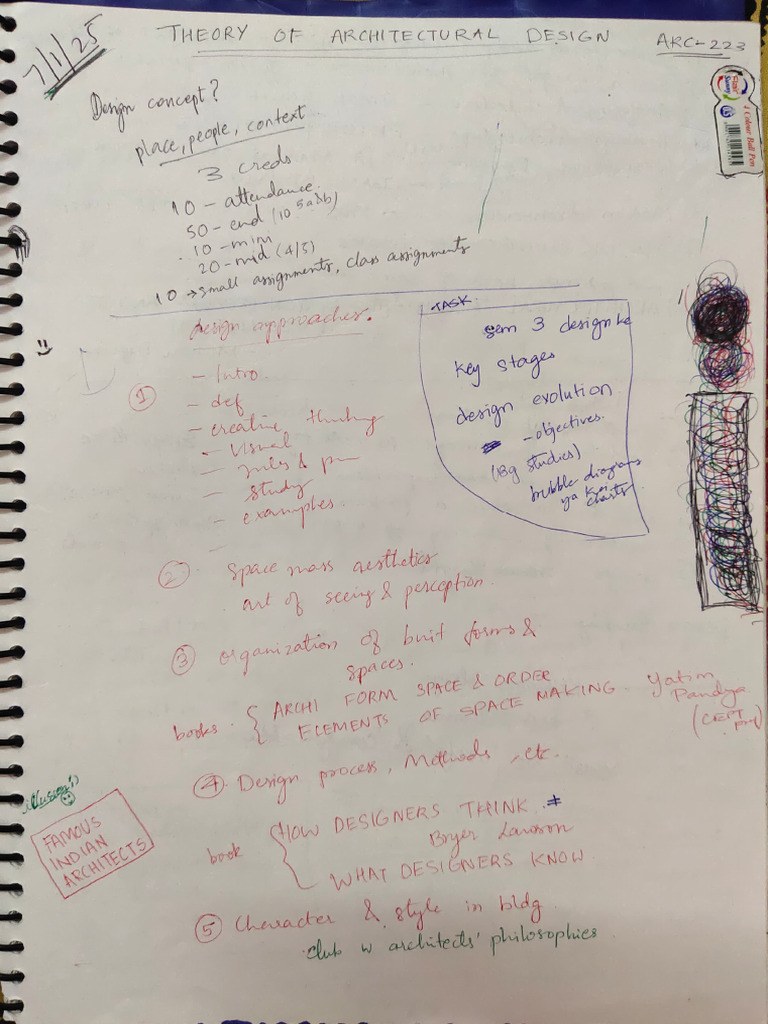 7/1/25
THEORY OF ARCHITECTURAL DESIGN ARC-223
Design concept?
place, people, context
3 creds
10 - attendance
50 - end (10 5a&b)
10 - mini
20 - mid (4/5)
10 → small assignments, class assignments
4 Colour Ball Pen
design approaches.
① - Intro
- def
- creative thinking
- visual
- study
- examples
TASK
sem 3 design ke
key stages
design evolution
- objectives.
(Bg studies)
bubble diagrams
ya koi
charts
② Space mass aesthetics
art of seeing & perception
③ Organization of built forms &
spaces.
books. { ARCHI FORM SPACE & ORDER
ELEMENTS OF SPACE MAKING. Yatin
Pandya
(CEPT prof)
④ Design process, Methods, etc.
illusion!
FAMOUS
INDIAN
ARCHITECTS
book { HOW DESIGNERS THINK
Bryer Lawson
WHAT DESIGNERS KNOW
⑤ Character & style in bldg.
club w architects' philosophies